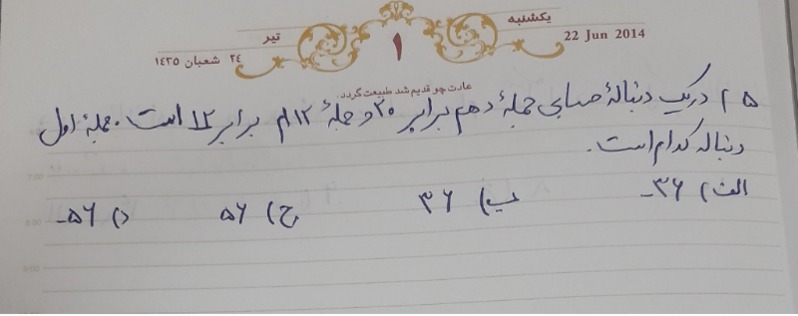 یکشنبه
22 Jun 2014
۱
تیر
۲۴ شعبان ۱۴۳۵
عادت چو قدیم شد طبیعت گردد.
۲۵) در یک دنبالهٔ حسابی جملهٔ دهم برابر ۲۰ و جملهٔ ۱۲ام برابر ۱۲ است. جملهٔ اول
دنباله کدام است.
الف) ۳۶- ب) ۳۶ ج) ۵۶ د) ۵۶-
7:00
8:00
9:00